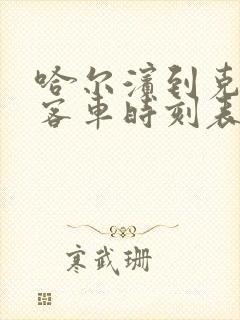 哈尔滨到克
客车时刻表
寒武珊